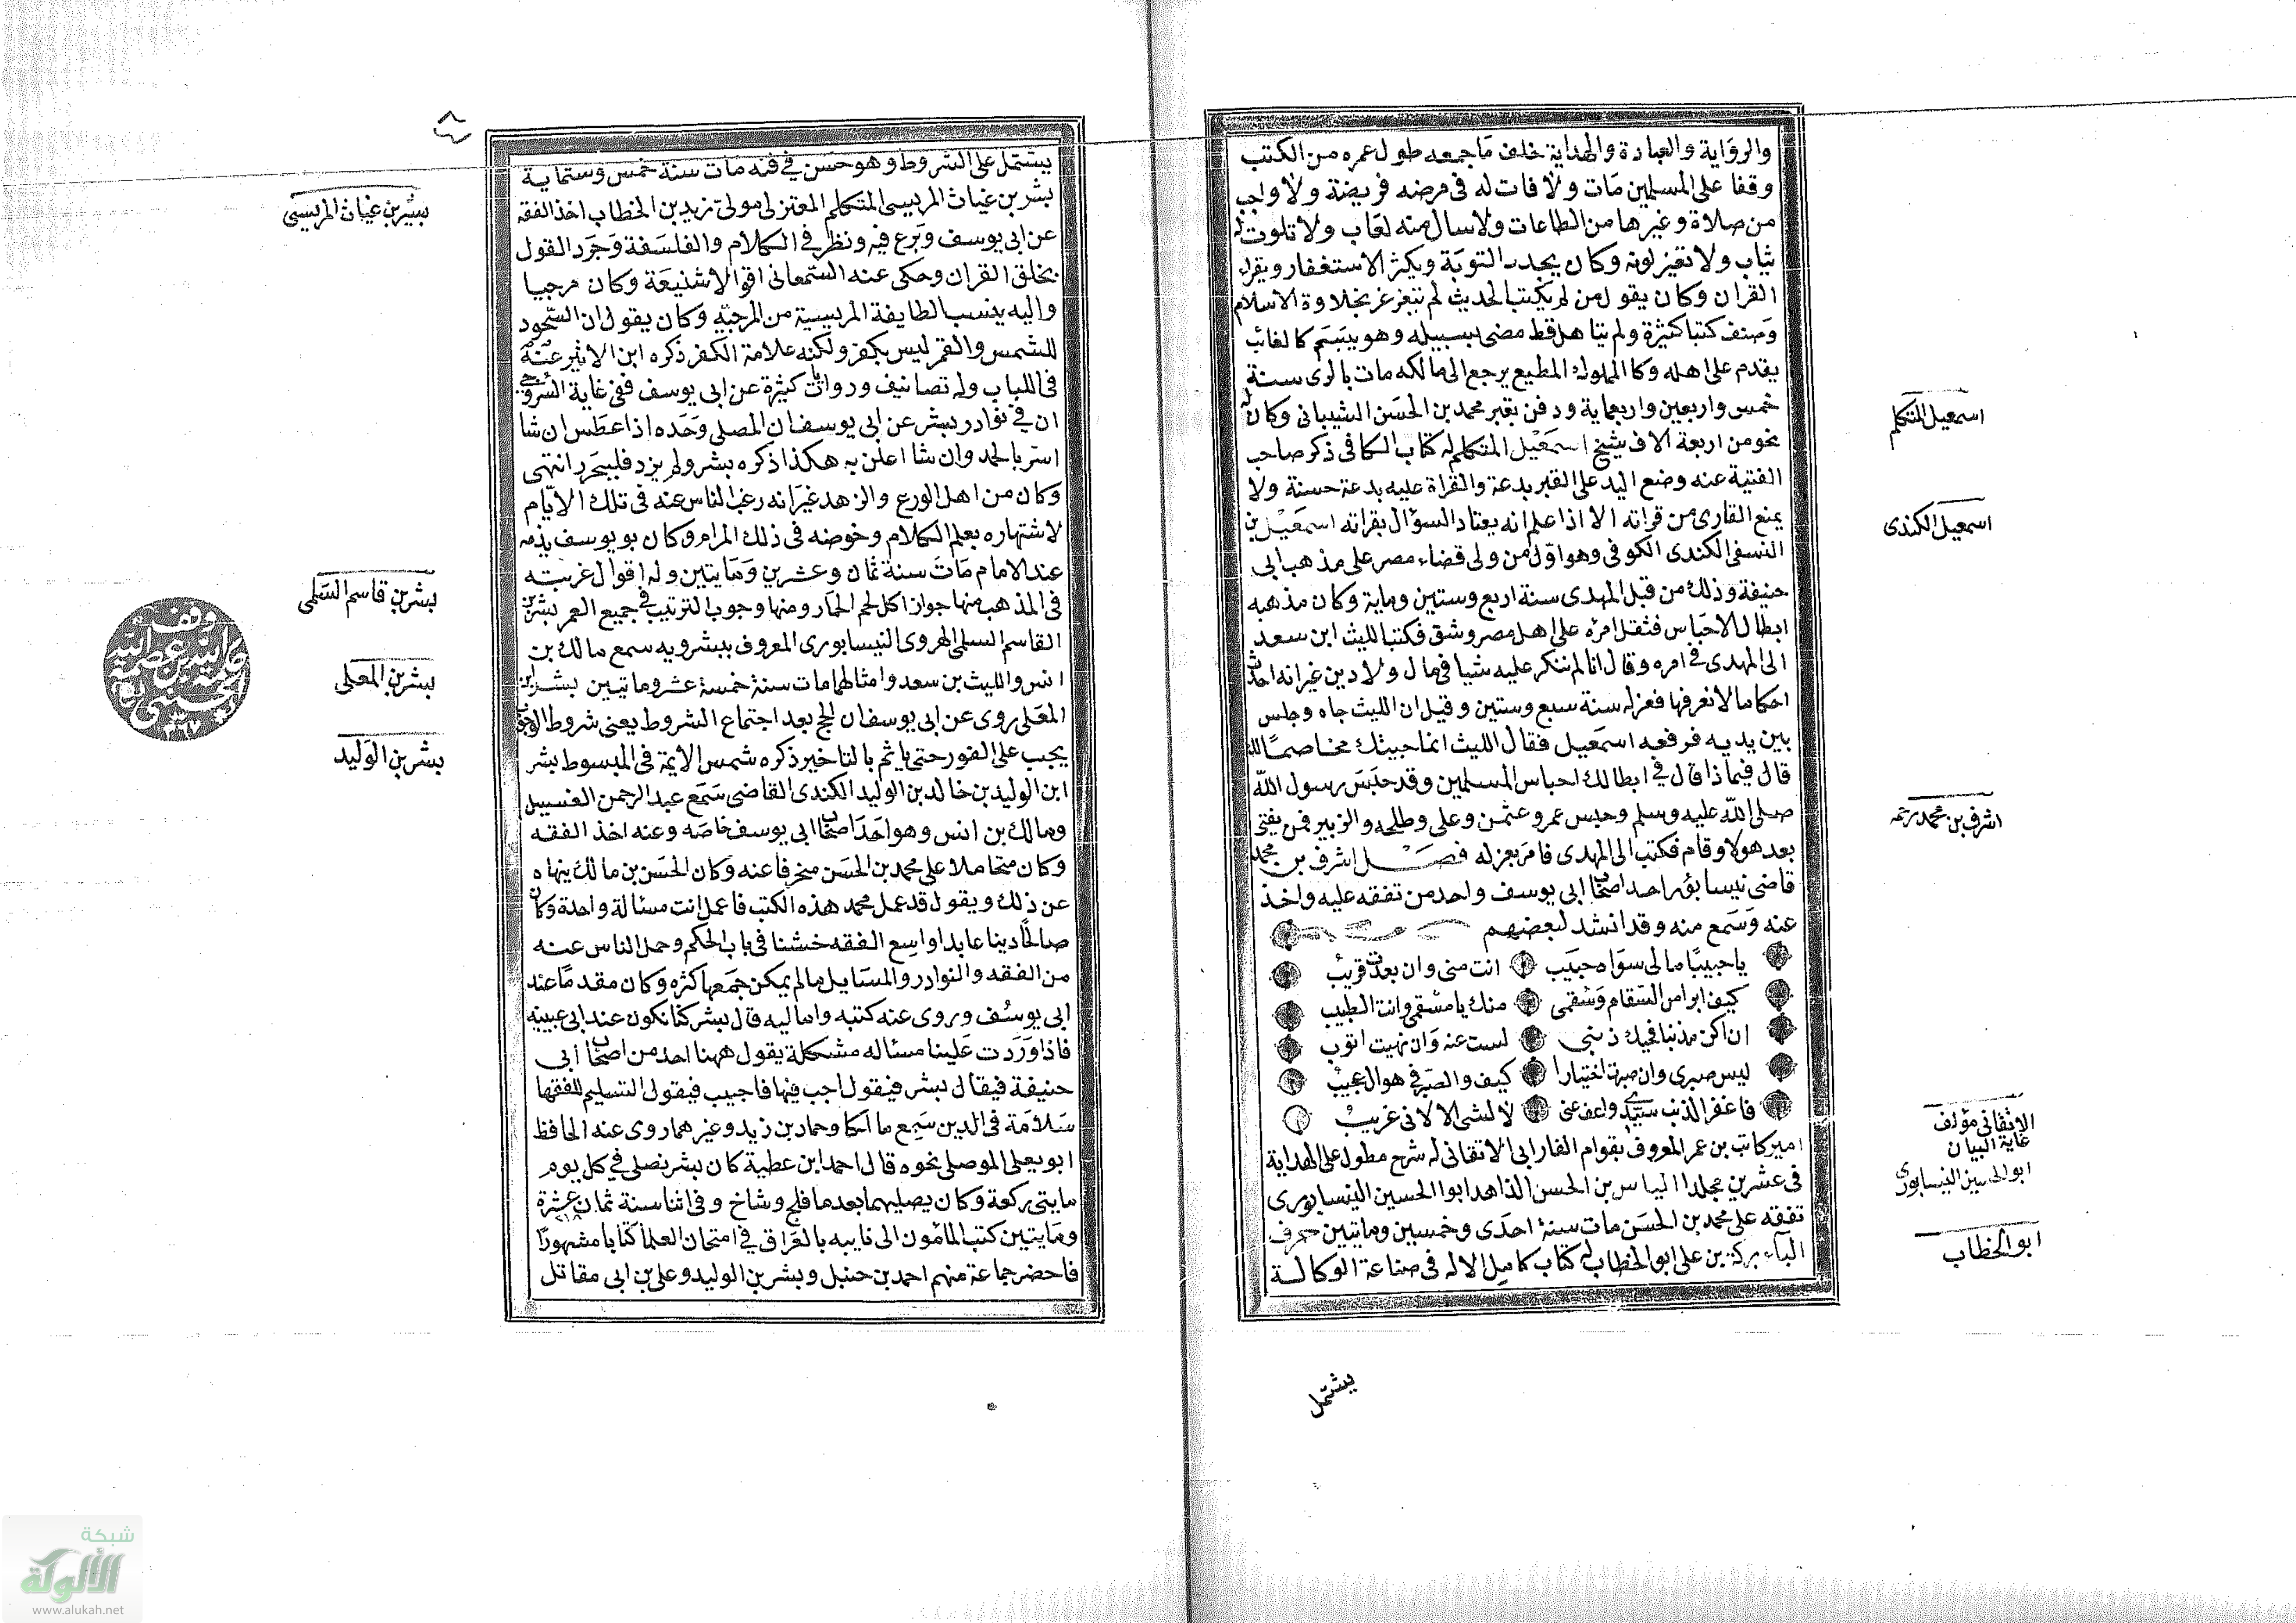 والرواية والعبادة والهداية خلف ما جمعه طول عمره من الكتب
وقفا على المسلمين مات ولا فات له فى مرضه فريضة ولا واجب
من صلاة وغيرها من الطاعات ولا سال منه لعاب ولا تلوث له
ثياب ولا تغير لونه وكان يجدد التوبة ويكثر الاستغفار ويقرا
القران وكان يقول من لم يكتب الحديث لم يتغرغر بحلاوة الاسلام
وصنف كتبا كثيرة ولم يتاهل قط مضى بسبيله وهو يبتسم كالغائب
يقدم على اهله وكالمملوك المطيع يرجع الى مالكه مات بالرى سنة
خمس واربعين واربعماية ودفن بقبر محمد بن الحسن الشيبانى وكان له
نحو من اربعة الاف شيخ اسمعيل المتكلم له كتاب الكافى ذكر صاحب
القنية عنه وضع اليد على القبر بدعة والقراة عليه بدعة حسنة ولا
يمنع القارى من قراته الا اذا علم انه يعتاد السؤال بقراته اسمعيل بن
النسفى الكندى الكوفى وهو اول من ولى قضاء مصر على مذهب ابى
حنيفة وذلك من قبل المهدى سنة اربع وستين وماية وكان مذهبه
ابطال الاحباس فثقل امره على اهل مصر وشق فكتب الليث ابن سعد
الى المهدى فى امره وقال انا لم ننكر عليه شيا فى مال ولا دين غير انه احدث
احكاما لا نعرفها فعزله سنة سبع وستين وقيل ان الليث جاه وجلس
بين يديه فرفعه اسمعيل فقال الليث انما جيتك مخاصما لله
قال فيماذا قال فى ابطالك احباس المسلمين وقد حبس رسول الله
صلى الله عليه وسلم وحبس عمر وعثمن وعلى وطلحه والزبير فمن بقى
بعد هولا وقام فكتب الى المهدى فامر بعزله فصل اشرف بن محمد
قاضى نيسابور احد اصحاب ابى يوسف واحد من تفقه عليه واخذ
عنه وسمع منه وقد انشد لبعضهم
يا حبيبا ما لى سواه حبيب انت منى وان بعدت قريب
كيف ابرا من السقام وسقمى منك يا مسقمى وانت الطبيب
ان اكن مذنبا فحبك ذنبى لست عنه وان نهيت اتوب
ليس صبرى وان صبرت اختيارا كيف والصبر فى هواك عجيب
فاغفر الذنب سيدى واعف عنى لا لشى الا لانى غريب
امير كاتب بن عمر المعروف بقوام الفارابى الاتقانى له شرح مطول على الهداية
فى عشرين مجلدا الياس بن الحسن الزاهد ابو الحسين النيسابورى
تفقه على محمد بن الحسن مات سنة احدى وخمسين وماتيين حرف
الباء بركة بن على ابو الخطاب له كتاب كامل الاله فى صناعة الوكالة
يشتمل
اسمعيل المتكلم
اسمعيل الكندى
اشرف بن محمد رحمه
الاتقانى مؤلف
غاية البيان
ابو الحسين النيسابورى
ابو الخطاب
يشتمل على الشروط وهو حسن فى فنه مات سنة خمس وستماية
بشر بن غياث المريسى المتكلم المعتزلى مولى زيد بن الخطاب اخذ الفقه
عن ابى يوسف وبرع فيه ونظر فى الكلام والفلسفة وجرد القول
بخلق القران وحكى عنه السمعانى اقوالا شنيعة وكان مرجيا
واليه ينسب الطايفة المريسية من المرجية وكان يقول ان السجود
للشمس والقمر ليس بكفر ولكنه علامة الكفر ذكره ابن الاثير عنه
فى اللباب وله تصانيف وروايات كثيرة عن ابى يوسف ففى غاية السروجى
ان فى نوادر بشر عن ابى يوسف ان المصلى وحده اذا عطس ان شا
اسر بالحمد وان شا اعلن به هكذا ذكره بشر ولم يزد فليحرر انتهى
وكان من اهل الورع والزهد غير انه رغب الناس عنه فى تلك الايام
لاشتهاره بعلم الكلام وخوضه فى ذلك المرام وكان بو يوسف يذمه
عند الامام مات سنة ثمان وعشرين ومايتين وله اقوال غريبة
فى المذهب منها جواز اكل لحم الحمار ومنها وجوب الترتيب فى جميع العمر بشر بن
القاسم السلمى الهروى النيسابورى المعروف ببشرويه سمع مالك بن
انس والليث بن سعد وامثالهما مات سنة خمسة عشر وماتيين بشر ابن
المعلى روى عن ابى يوسف ان الحج بعد اجتماع الشروط يعنى شروط الوجوب
يجب على الفور حتى ياثم بالتاخير ذكره شمس الايمة فى المبسوط بشر
ابن الوليد بن خالد بن الوليد الكندى القاضى سمع عبد الرحمن الغسيل
ومالك بن انس وهو احد اصحاب ابى يوسف خاصه وعنه اخذ الفقه
وكان متحاملا على محمد بن الحسن منحرفا عنه وكان الحسن بن مالك ينهاه
عن ذلك ويقول قد عمل محمد هذه الكتب فاعمل انت مسئالة واحدة وكان
صالحا دينا عابدا واسع الفقه خشنا فى باب الحكم وحمل الناس عنه
من الفقه والنوادر والمسايل ما لم يمكن جمعها كثره وكان مقدما عند
ابى يوسف وروى عنه كتبه واماليه قال بشر كنا نكون عند ابى عيينه
فاذا وردت علينا مسئاله مشكلة يقول ههنا احد من اصحاب ابى
حنيفة فيقال بشر فيقول اجب فيها فاجيب فيقول التسليم للفقها
سلامة فى الدين سمع مالكا وحماد بن زيد وغيرهما روى عنه الحافظ
ابو يعلى الموصلى نحوه قال احمد ابن عطية كان بشر يصلى فى كل يوم
مايتى ركعة وكان يصليهما بعد ما فلج وشاخ وفى اثنا سنة ثمان عشرة
ومايتين كتب المامون الى نايبه بالعراق فى امتحان العلما كتابا مشهورا
فاحضر جماعة منهم احمد بن حنبل وبشر بن الوليد وعلى بن ابى مقاتل
بشر بن غياث المريسى
بشر بن قاسم السلمى
بشر بن المعلى
بشر بن الوليد
وقف
شبكة
الألوكة
www.alukah.net